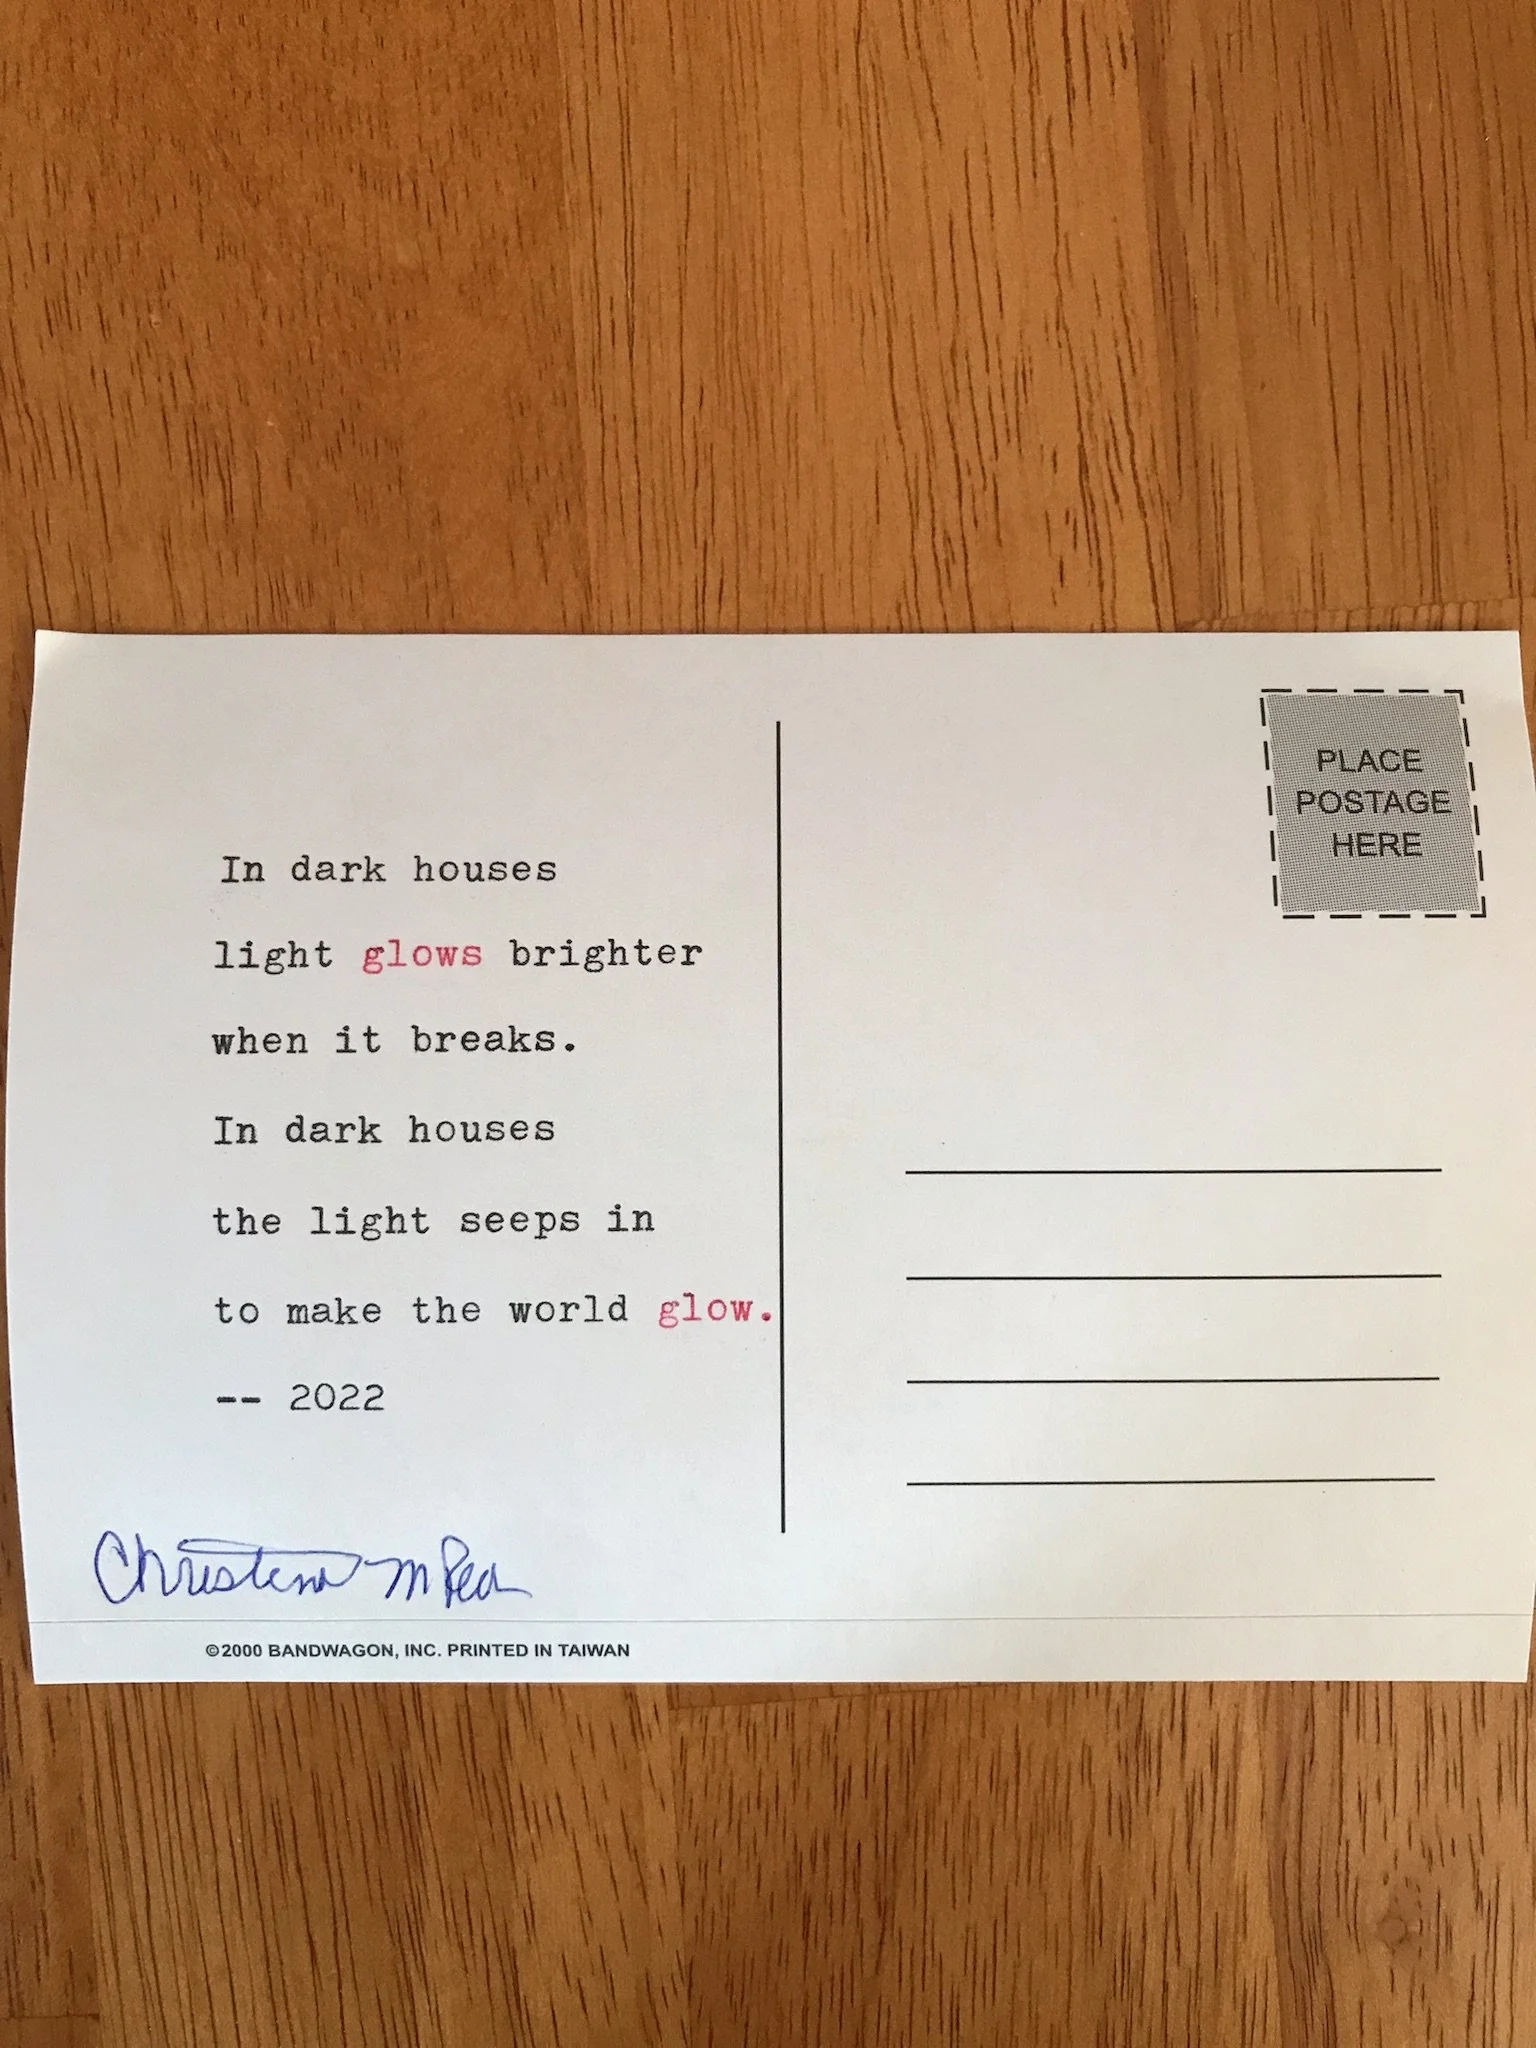 In dark houses
light glows brighter
when it breaks.
In dark houses
the light seeps in
to make the world glow.
-- 2022
Christina M
©2000 BANDWAGON, INC. PRINTED IN TAIWAN
PLACE
POSTAGE
HERE